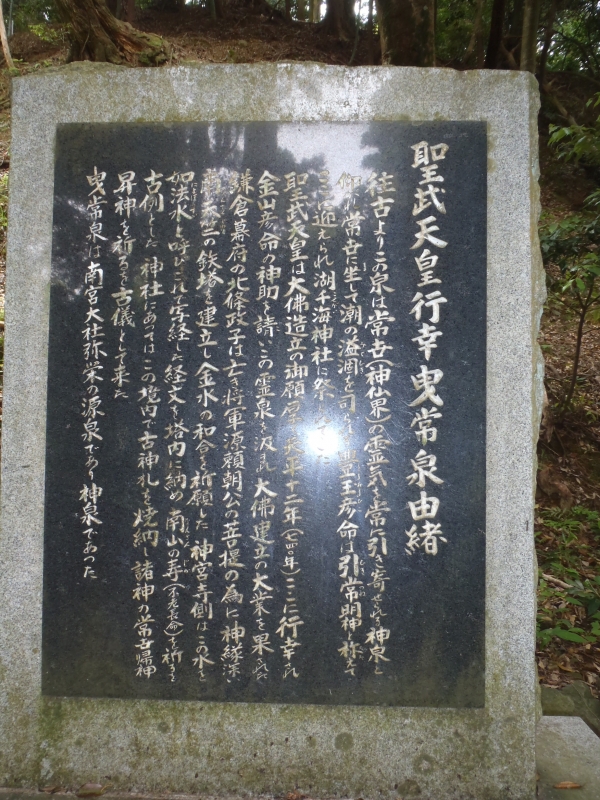 聖武天皇行幸曳常泉由緒
往古よりこの泉は常世(神仙界)の霊気を常に引き寄される神泉と
仰ぎ常世に坐して潮の溢涸を司る豊玉彦命は引常明神と称えて
ここに迎えられ湖千海神社に祭
聖武天皇は大佛造立の御願 天平十二年(七四〇年)ここに行幸され
金山彦命の神助を請いこの霊泉を汲まれ大佛建立の大業を果された
鎌倉幕府の北條政子は亡き将軍源頼朝公の菩提の為に神縁深い
の鉄塔を建立し金水の和合を祈願した 神宮寺側はこの水を
如法水と呼びこれで写経した経文を塔内に納め南山の寿(不老長命)を祈るを
古例とした 神社にあってはこの境内で古神札を焼納し諸神の常世帰神
昇神を祈るを古儀として来た
曳常泉は南宮大社弥栄の源泉であり神泉であった